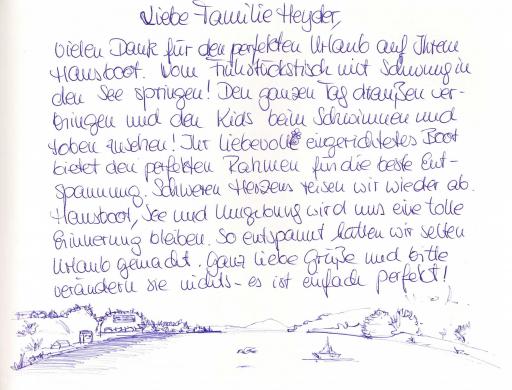 Liebe Familie Heyder,
vielen Dank für den perfekten Urlaub auf Ihrem
Hausboot. Vom Frühstückstisch mit Schwung in
den See springen! Den ganzen Tag draußen ver-
bringen und den Kids beim Schwimmen und
toben zusehen! Ihr liebevoll eingerichtetes Boot
bietet den perfekten Rahmen für die beste Ent-
spannung. Schweren Herzens reisen wir wieder ab.
Hausboot, See und Umgebung wird uns eine tolle
Erinnerung bleiben. So entspannt hatten wir selten
Urlaub gemacht. Ganz liebe Grüße und bitte
verändern sie nichts - es ist einfach perfekt!